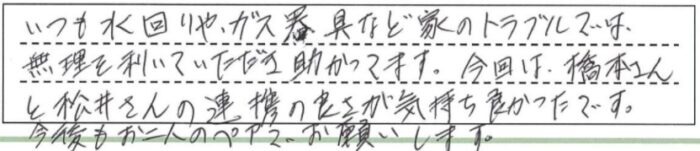 いつも水回りや、ガス器具など家のトラブルでは、
無理を利いていただき助かってます。今回は、橋本さん
と松井さんの連携の良さが気持ち良かったです。
今後もお二人のペアで、お願いします。